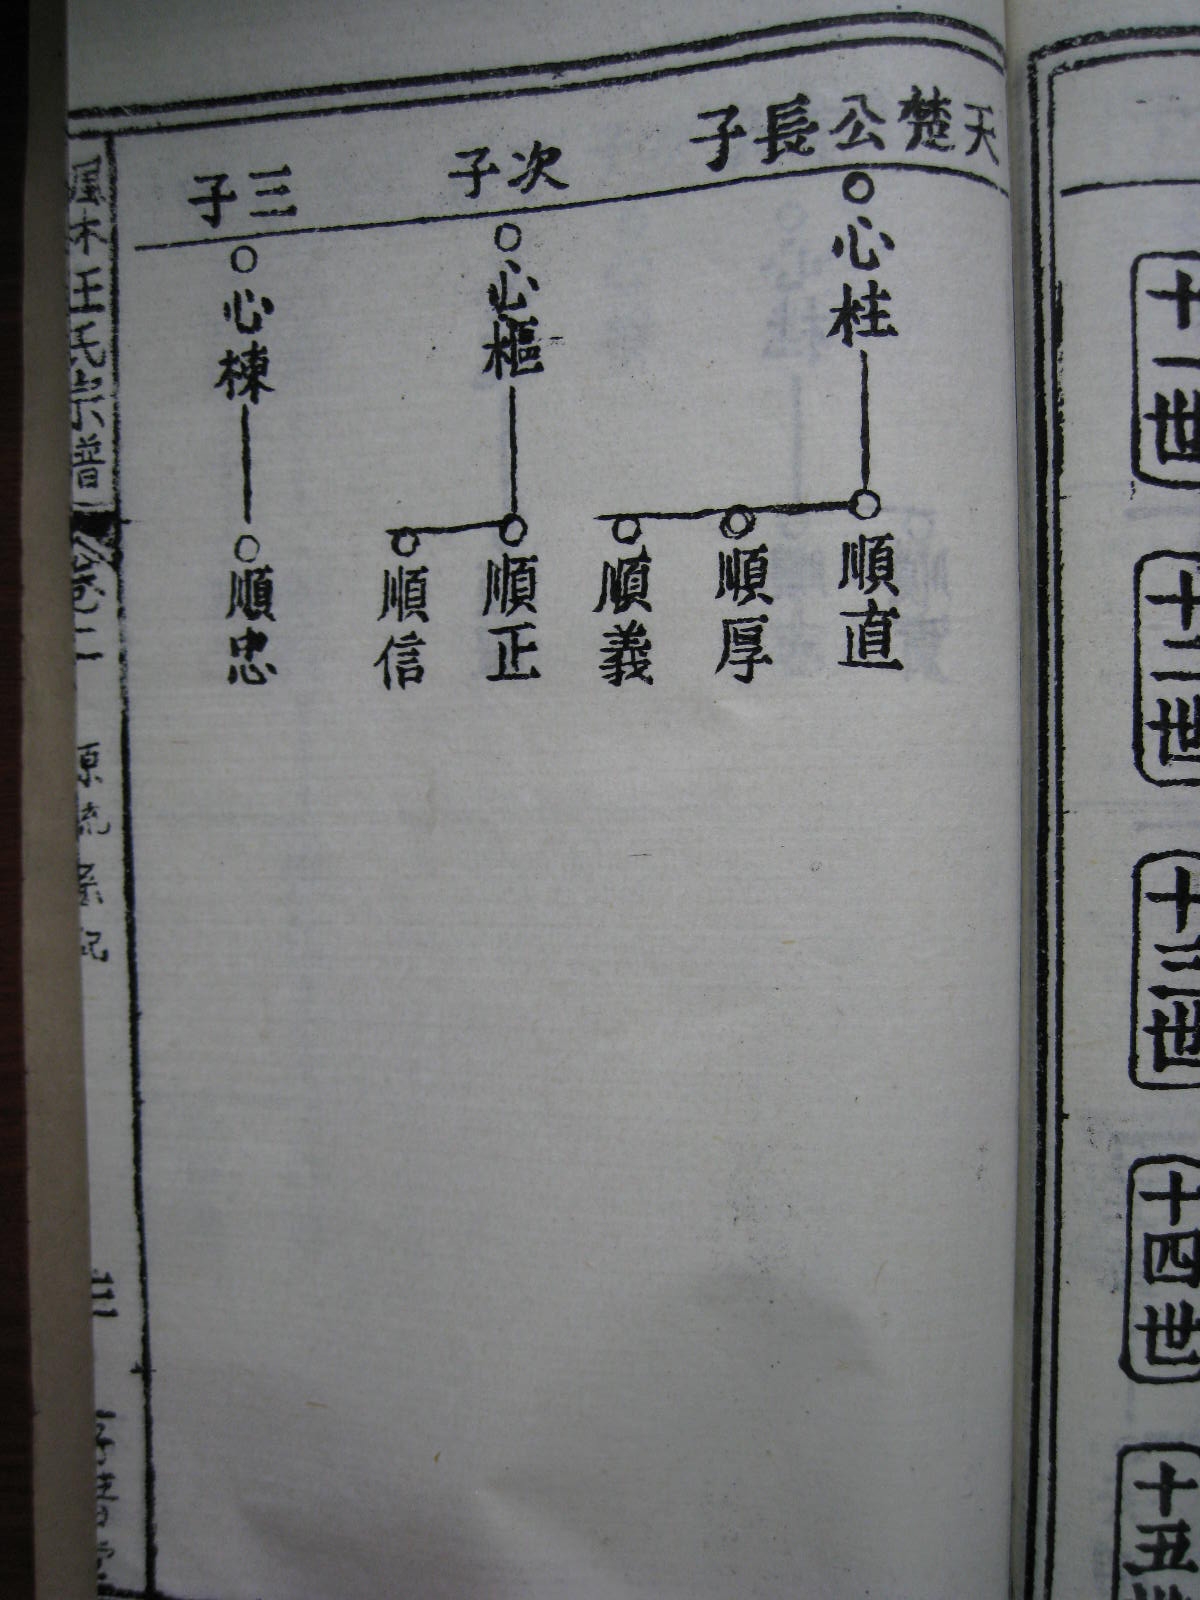 十一世
十二世
十三世
十四世
十五世
天楚公長子
心柱
順直
順厚
順義
次子
心樞
順正
順信
三子
心棟
順忠
王氏宗普
卷二
原流系記